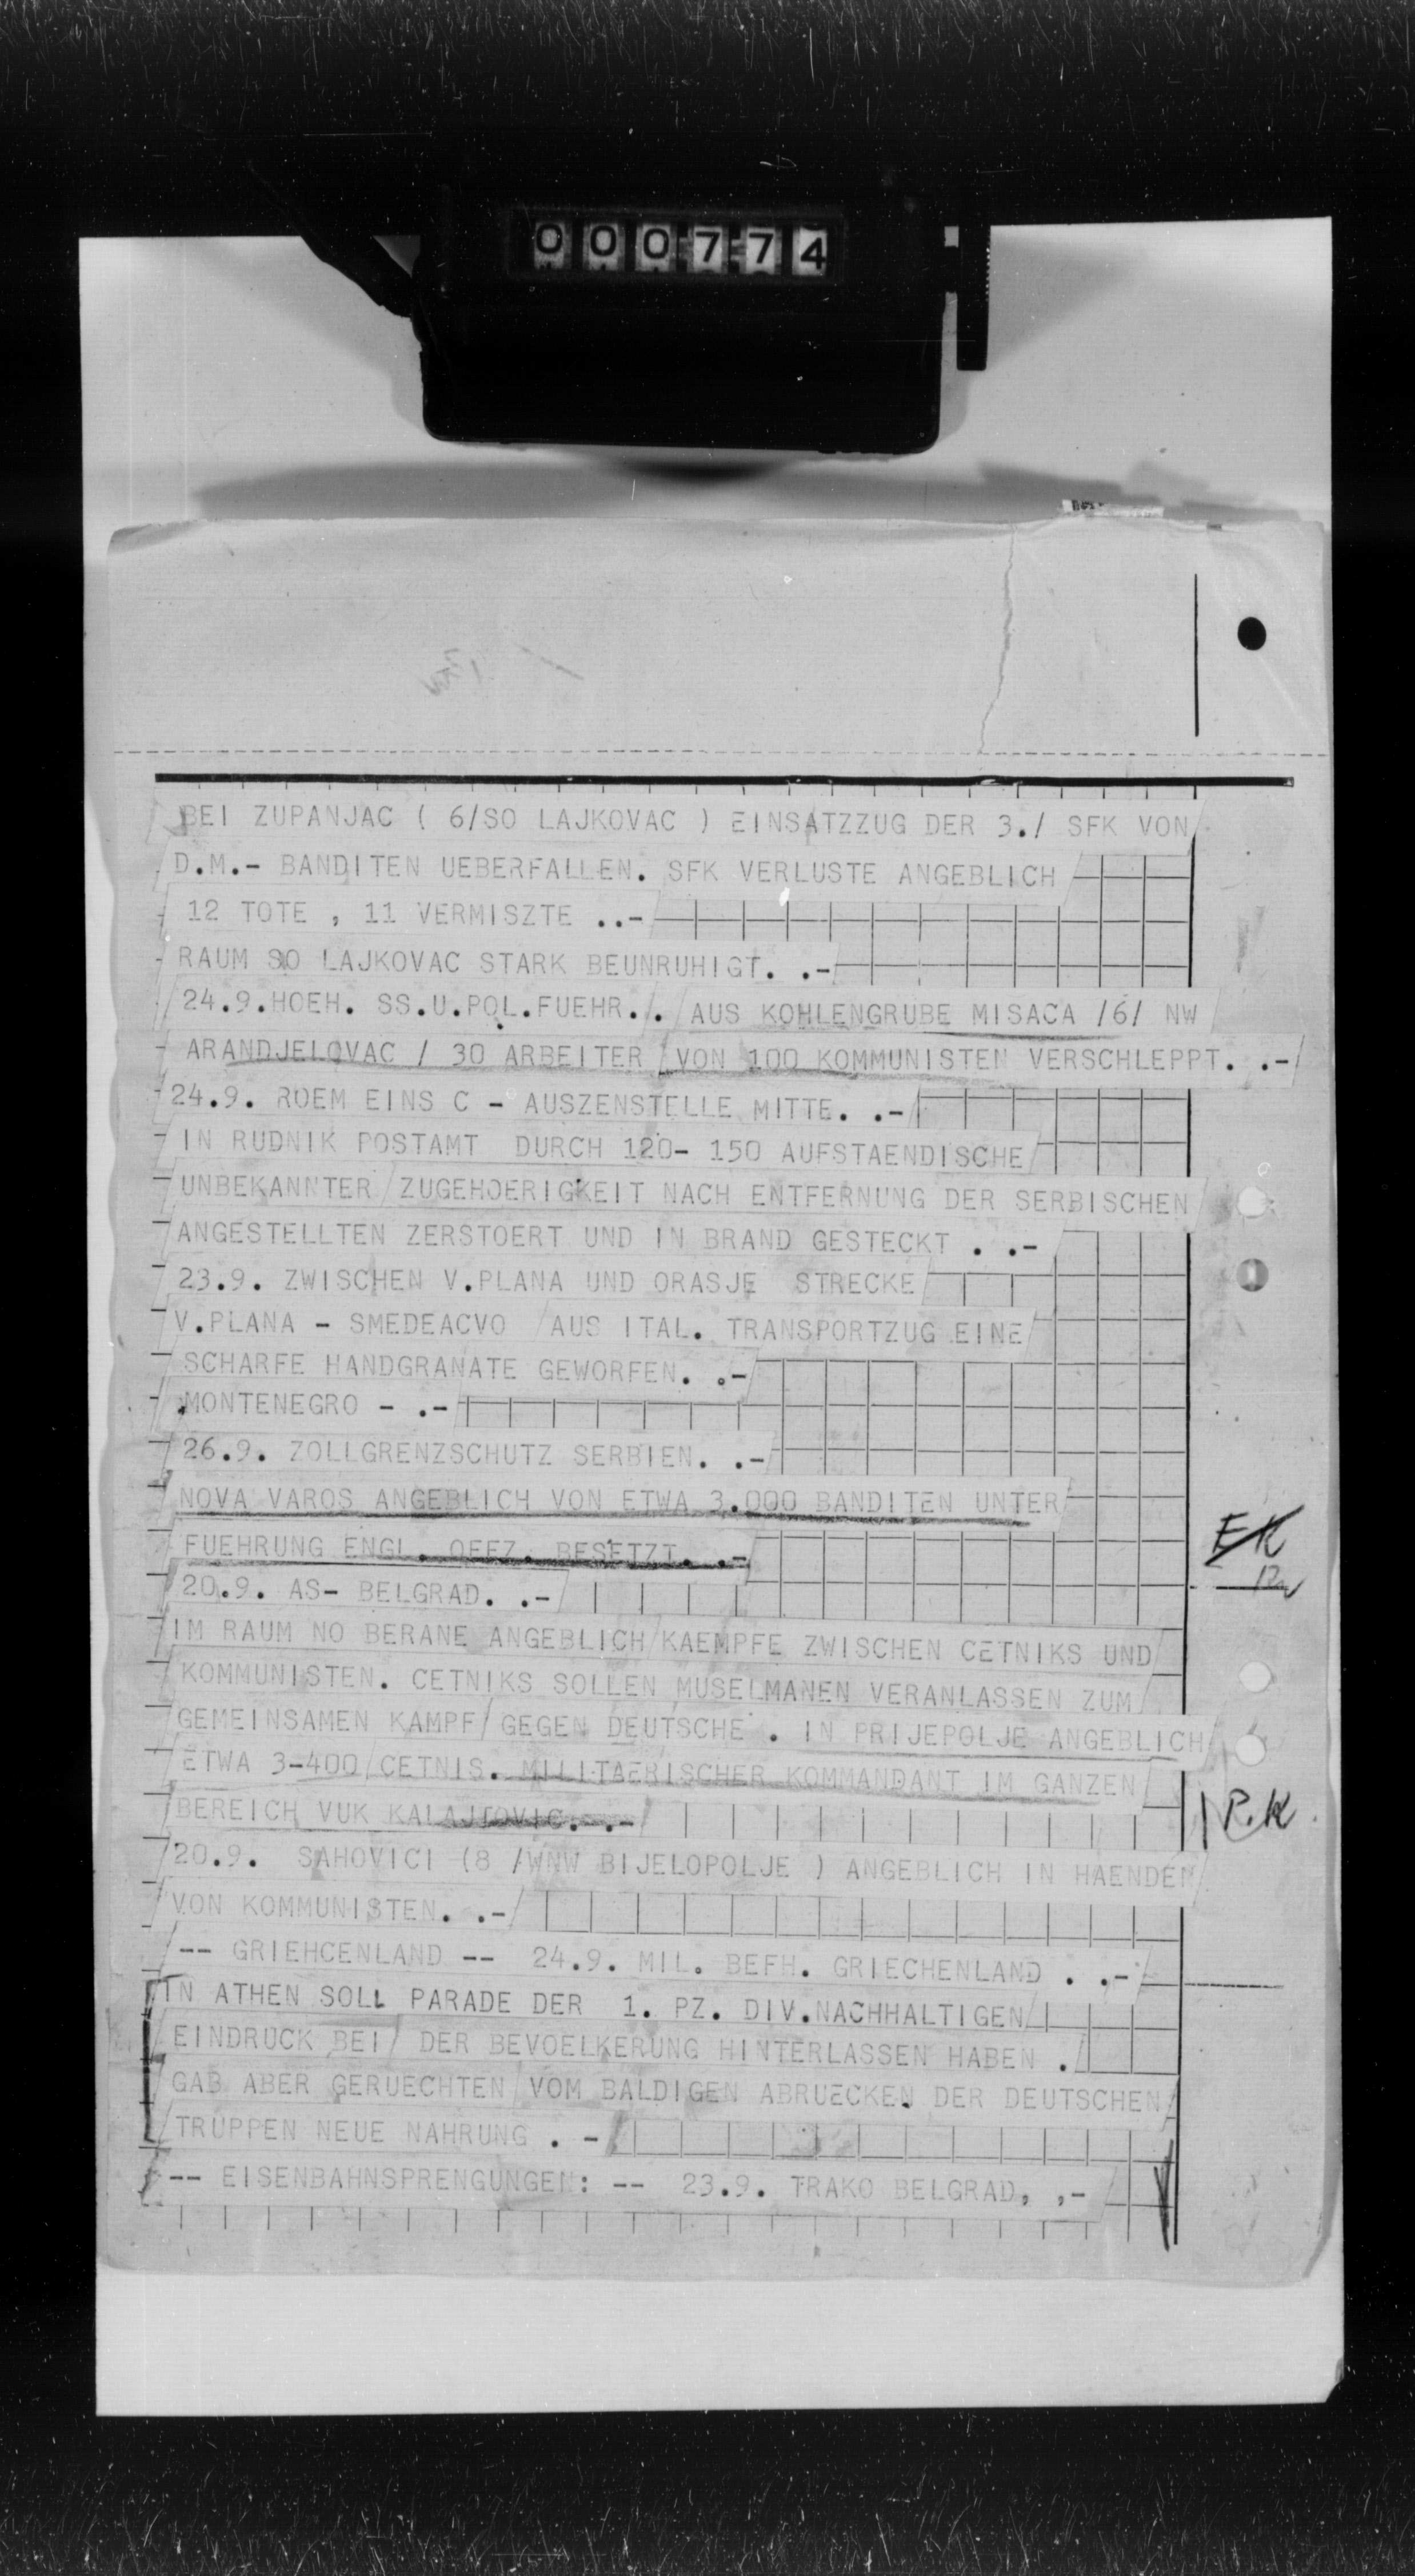 000774
BEI ZUPANJAC ( 6/SO LAJKOVAC ) EINSATZZUG DER 3./ SFK VON
D.M.- BANDITEN UEBERFALLEN. SFK VERLUSTE ANGEBLICH
12 TOTE , 11 VERMISZTE ..-
RAUM SO LAJKOVAC STARK BEUNRUHIGT. .-
24.9.HOEH. SS.U.POL.FUEHR.. AUS KOHLENGRUBE MISACA /6/ NW
ARANDJELOVAC / 30 ARBEITER VON 100 KOMMUNISTEN VERSCHLEPPT. .-
24.9. ROEM EINS C - AUSZENSTELLE MITTE. .-
IN RUDNIK POSTAMT DURCH 120- 150 AUFSTAENDISCHE
UNBEKANNTER ZUGEHOERIGKEIT NACH ENTFERNUNG DER SERBISCHEN
ANGESTELLTEN ZERSTOERT UND IN BRAND GESTECKT . .-
23.9. ZWISCHEN V.PLANA UND ORASJE STRECKE
V.PLANA - SMEDEACVO AUS ITAL. TRANSPORTZUG EINE
SCHARFE HANDGRANATE GEWORFEN. .-
MONTENEGRO - .-
26.9. ZOLLGRENZSCHUTZ SERBIEN. .-
NOVA VAROS ANGEBLICH VON ETWA 3.000 BANDITEN UNTER
FUEHRUNG ENGL. OFFZ. BESETZT. .-
EK
20.9. AS- BELGRAD. .-
IM RAUM NO BERANE ANGEBLICH KAEMPFE ZWISCHEN CETNIKS UND
KOMMUNISTEN. CETNIKS SOLLEN MUSELMANEN VERANLASSEN ZUM
GEMEINSAMEN KAMPF GEGEN DEUTSCHE . IN PRIJEPOLJE ANGEBLICH
ETWA 3-400 CETNIS. MILITAERISCHER KOMMANDANT IM GANZEN
BEREICH VUK KALAJTOVIC. .-
P.K.
20.9. SAHOVICI (8 /WNW BIJELOPOLJE ) ANGEBLICH IN HAENDEN
VON KOMMUNISTEN. .-
-- GRIEHCENLAND -- 24.9. MIL. BEFH. GRIECHENLAND . .-
IN ATHEN SOLL PARADE DER 1. PZ. DIV.NACHHALTIGEN
EINDRUCK BEI DER BEVOELKERUNG HINTERLASSEN HABEN .
GAB ABER GERUECHTEN VOM BALDIGEN ABRUECKEN DER DEUTSCHEN
TRUPPEN NEUE NAHRUNG . -
-- EISENBAHNSPRENGUNGEN: -- 23.9. TRAKO BELGRAD, ,-